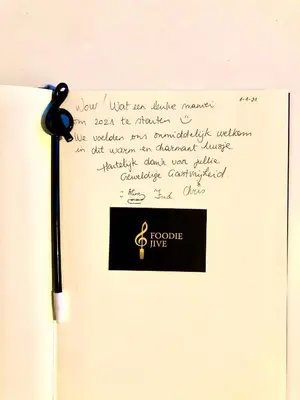 1-1-21
Wow! Wat een leuke manier
om 2021 te starten
We voelden ons onmiddelijk welkom
in dit warm en charmant huisje
Hartelijk dank voor jullie
Geweldige Gastvrijheid
Chris
FOODIE
JIVE